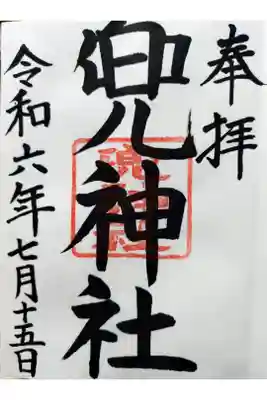 奉拝
兜神社
令和六年七月十五日